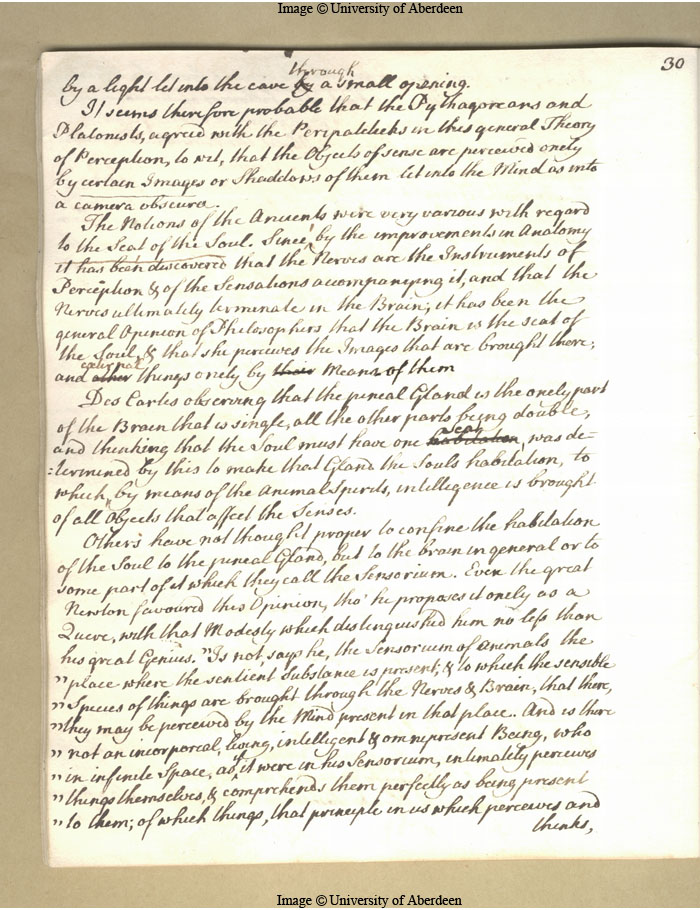 Image © University of Aberdeen
30
through
by a light let into the cave by a small opening.
It seems therefore probable that the Pythagoreans and
Platonists, agreed with the Peripateticks in this general Theory
of Perception, to wit, that the Objects of sense are perceived onely
by certain Images or Shaddows of them let into the Mind as into
a camera obscura.
The Notions of the Ancients were very various with regard
to the Seat of the Soul. Since, by the improvements in Anatomy
it has been discovered that the Nerves are the Instruments of
Perception & of the Sensations accompanying it, and that the
Nerves ultimately terminate in the Brain; it has been the
general Opinion of Philosophers that the Brain is the seat of
the Soul, & that she perceives the Images that are brought there;
external
and other things onely by their Means of them
Des Cartes observing that the pineal Gland is the onely part
of the Brain that is single, all the other parts being double,
Seat
and thinking that the Soul must have one habitation, was de-
:termined by this to make that Gland the Souls habitation, to
which, by means of the Animal Spirits, intelligence is brought
of all Objects that affect the Senses.
Others have not thought proper to confine the habitation
of the Soul to the pineal Gland, but to the brain in general or to
some part of it which they call the Sensorium. Even the great
Newton favoured this Opinion, tho' he proposes it onely as a
Quere, with that Modesty which distinguished him no less than
his great Genius. "Is not, says he, the Sensorium of animals the
" place where the sentient Substance is present, & to which the sensible
" Species of things are brought through the Nerves & Brain, that there,
" they may be perceived by the Mind present in that place. And is there
" not an incorporeal, living, intelligent & omnipresent Being, who
" in infinite Space, as it were in his Sensorium, intimately perceives
" things themselves, & comprehends them perfectly as being present
" to them; of which things, that principle in us which perceives and
thinks,
Image © University of Aberdeen